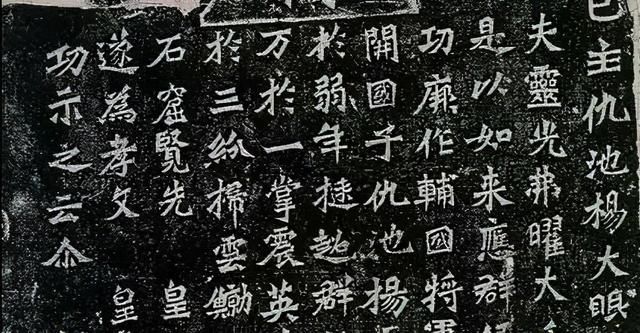 邑主仇池楊大眼
夫靈光弗曜大
是以如来應群
功厥作輔國將軍
開國子仇池楊
於弱年挺超群
万於一掌震英
於三紛掃雲鯨
石窟覽先皇
遂為孝文皇
功示之云尒